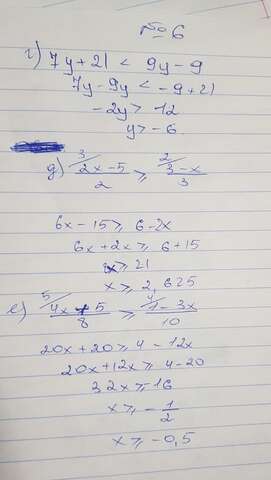 № 6
г) 7y + 21 < 9y - 9
7y - 9y < -9 + 21
-2y > 12
y > -6
д) 3/ 2x - 5 / 2 ⩾ 2/ 3 - x / 3
6x - 15 ⩾ 6 - 2x
6x + 2x ⩾ 6 + 15
8x ⩾ 21
x ⩾ 2,625
е) 5/ 4x + 5 / 8 ⩾ 4/ 1 - 3x / 10
20x + 20 ⩾ 4 - 12x
20x + 12x ⩾ 4 - 20
32x ⩾ -16
x ⩾ - 1/2
x ⩾ -0,5